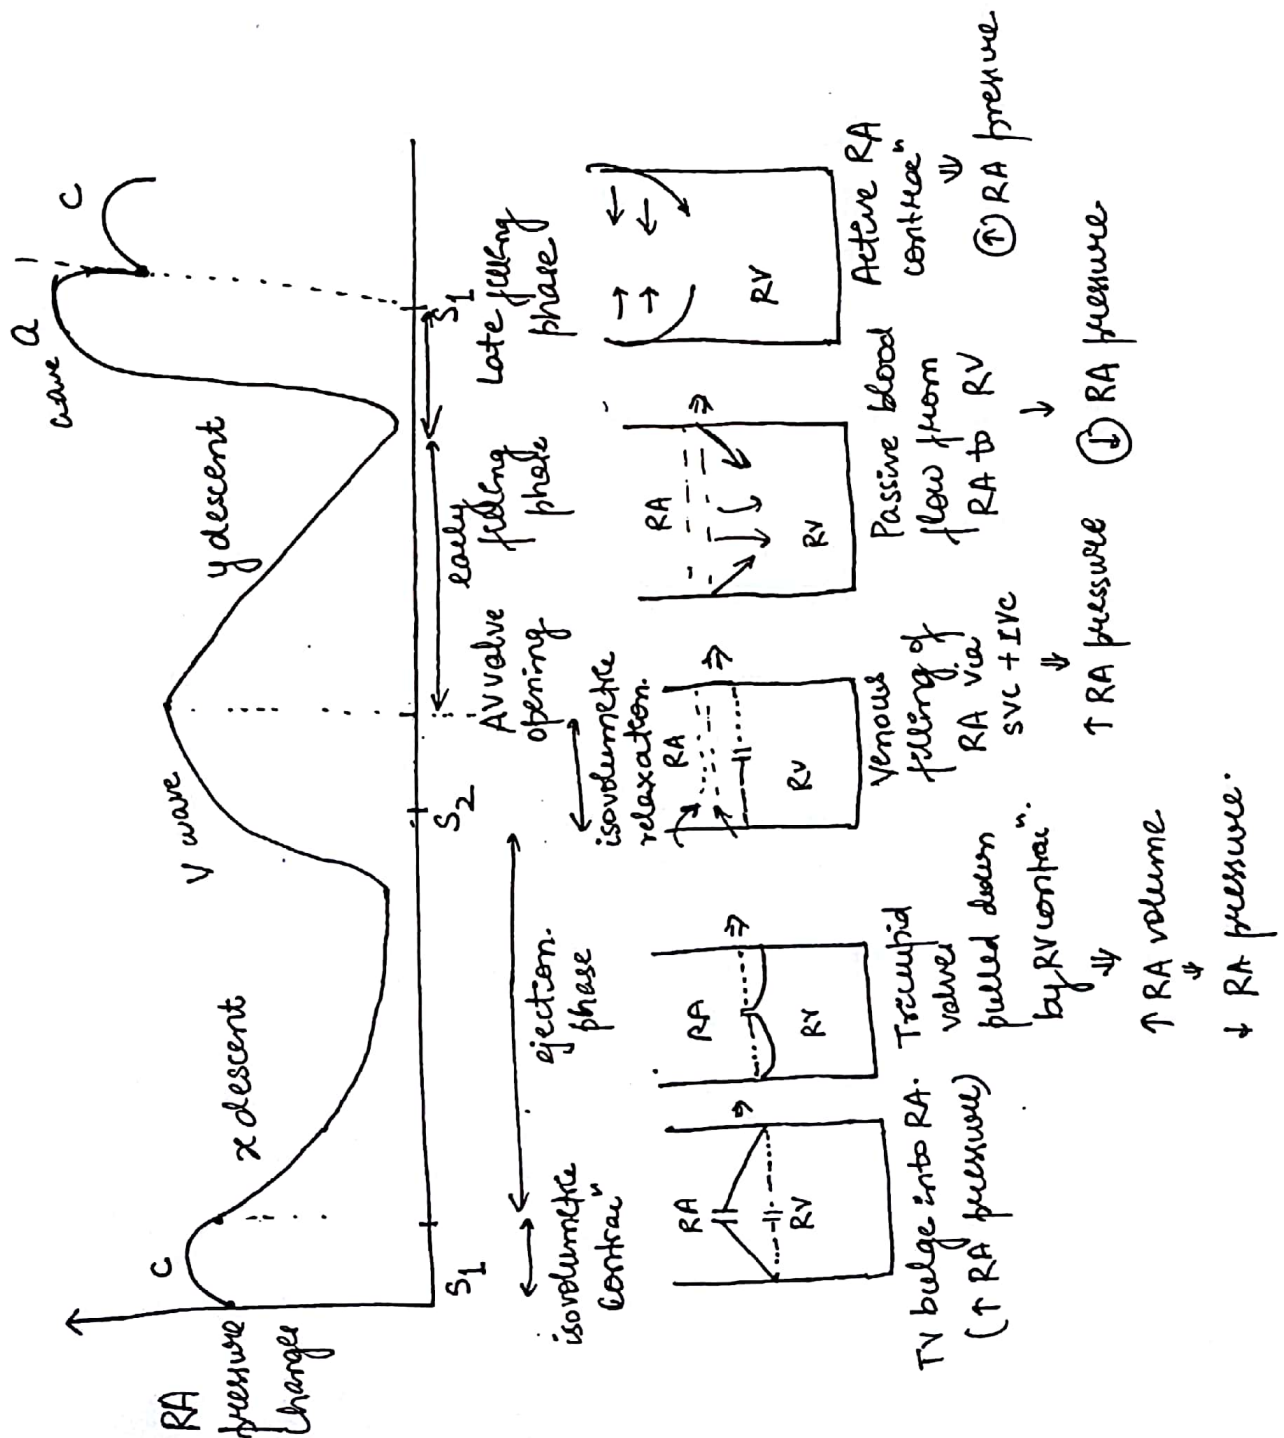 RA
pressure
changes
C
x descent
V wave
y descent
a
wave
C
S1
S2
S1
isovolumetric
contracⁿ
ejection
phase
isovolumetric
relaxation.
AV valve
opening
early
filling
phase
Late filling
phase
RA
RV
TV bulge into RA.
(↑ RA pressure)
RA
RV
Tricuspid
valves
pulled down
by RV contracⁿ.
⇓
↑ RA volume
⇓
↓ RA pressure.
RA
RV
Venous
filling of
RA via
SVC + IVC
⇓
↑ RA pressure
RA
RV
Passive blood
flow from
RA to RV
↓
↓ RA pressure.
RV
Active RA
contracⁿ
⇓
↑ RA pressure